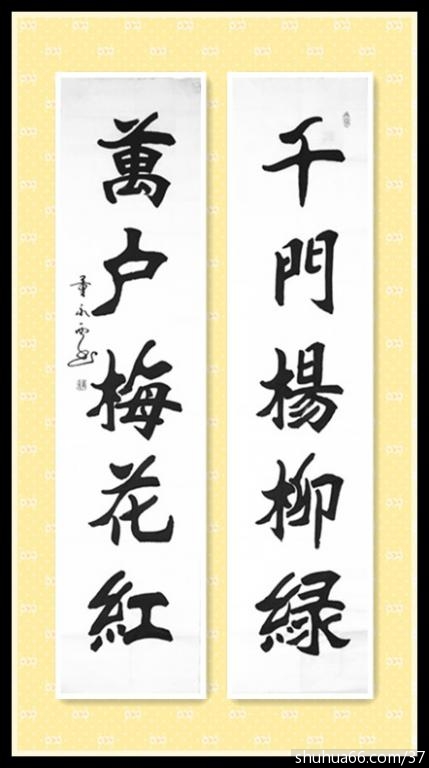 千門楊柳緑
萬户梅花紅
shuhua66.com/37